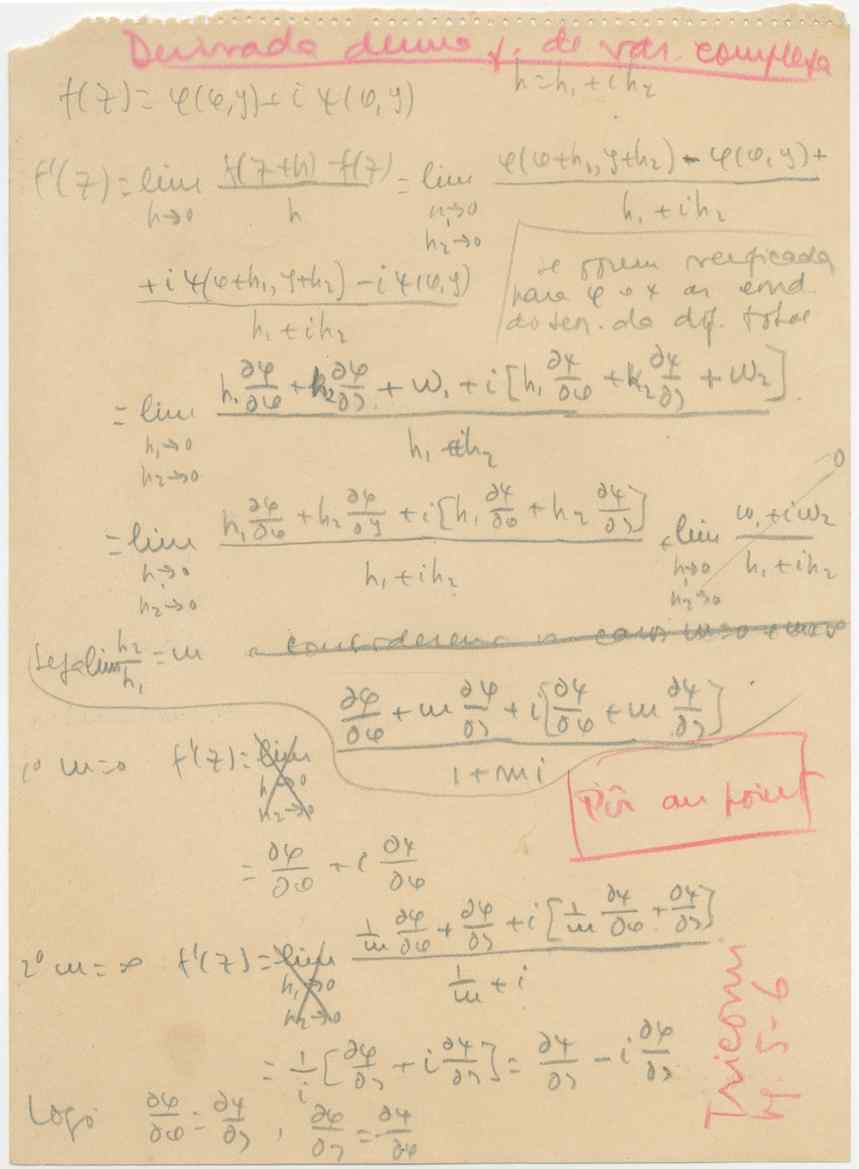 Derivada duma f. de var. complexa
h = h₁ + i h₂
f(z) = φ(x,y) + i ψ(x,y)
f'(z) = lim_{h→0} (f(z+h) - f(z))/h = lim_{h₁→0, h₂→0} (φ(x+h₁, y+h₂) - φ(x,y) +)/(h₁ + i h₂)
(+ i ψ(x+h₁, y+h₂) - i ψ(x,y))/(h₁ + i h₂)
se forem verificada
para φ e ψ as cond.
do da dif. total
= lim_{h₁→0, h₂→0} (h₁ ∂φ/∂x + h₂ ∂φ/∂y + ω₁ + i [h₁ ∂ψ/∂x + h₂ ∂ψ/∂y + ω₂])/(h₁ + i h₂)
0
= lim_{h₁→0, h₂→0} (h₁ ∂φ/∂x + h₂ ∂φ/∂y + i [h₁ ∂ψ/∂x + h₂ ∂ψ/∂y])/(h₁ + i h₂) + lim_{h₁→0, h₂→0} (ω₁ + i ω₂)/(h₁ + i h₂)
Seja lim h₂/h₁ = m
(∂φ/∂x + m ∂φ/∂y + i [∂ψ/∂x + m ∂ψ/∂y])/(1 + m i)
1º m = 0 f'(z) = lim_{h₁→0, h₂→0}
Pôr au point
= ∂φ/∂x + i ∂ψ/∂x
2º m = ∞ f'(z) = lim_{h₁→0, h₂→0} (1/m ∂φ/∂x + ∂φ/∂y + i [1/m ∂ψ/∂x + ∂ψ/∂y])/(1/m + i)
= 1/i [∂φ/∂y + i ∂ψ/∂y] = ∂ψ/∂y - i ∂φ/∂y
Logo ∂φ/∂x = ∂ψ/∂y, ∂φ/∂y = -∂ψ/∂x
Tricomi
5-6